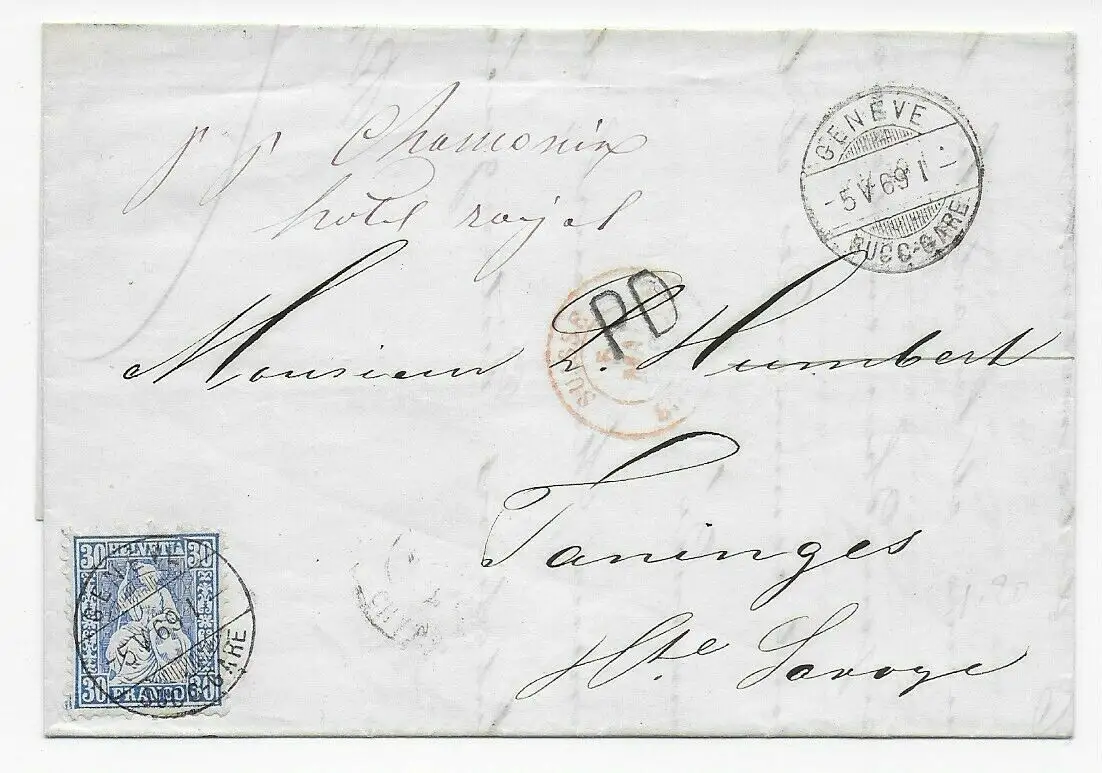 p p Chamonix
hotel royal
GENÈVE
-5 V 69 1-
SUCC-GARE
PD
SUISSE
5
MAI
Monsieur L. Humbert
Taninges
Hte Savoye
30 HELVETIA 30
30 FRANCO 30
GENÈVE
-5 V 69 1-
SUCC-GARE